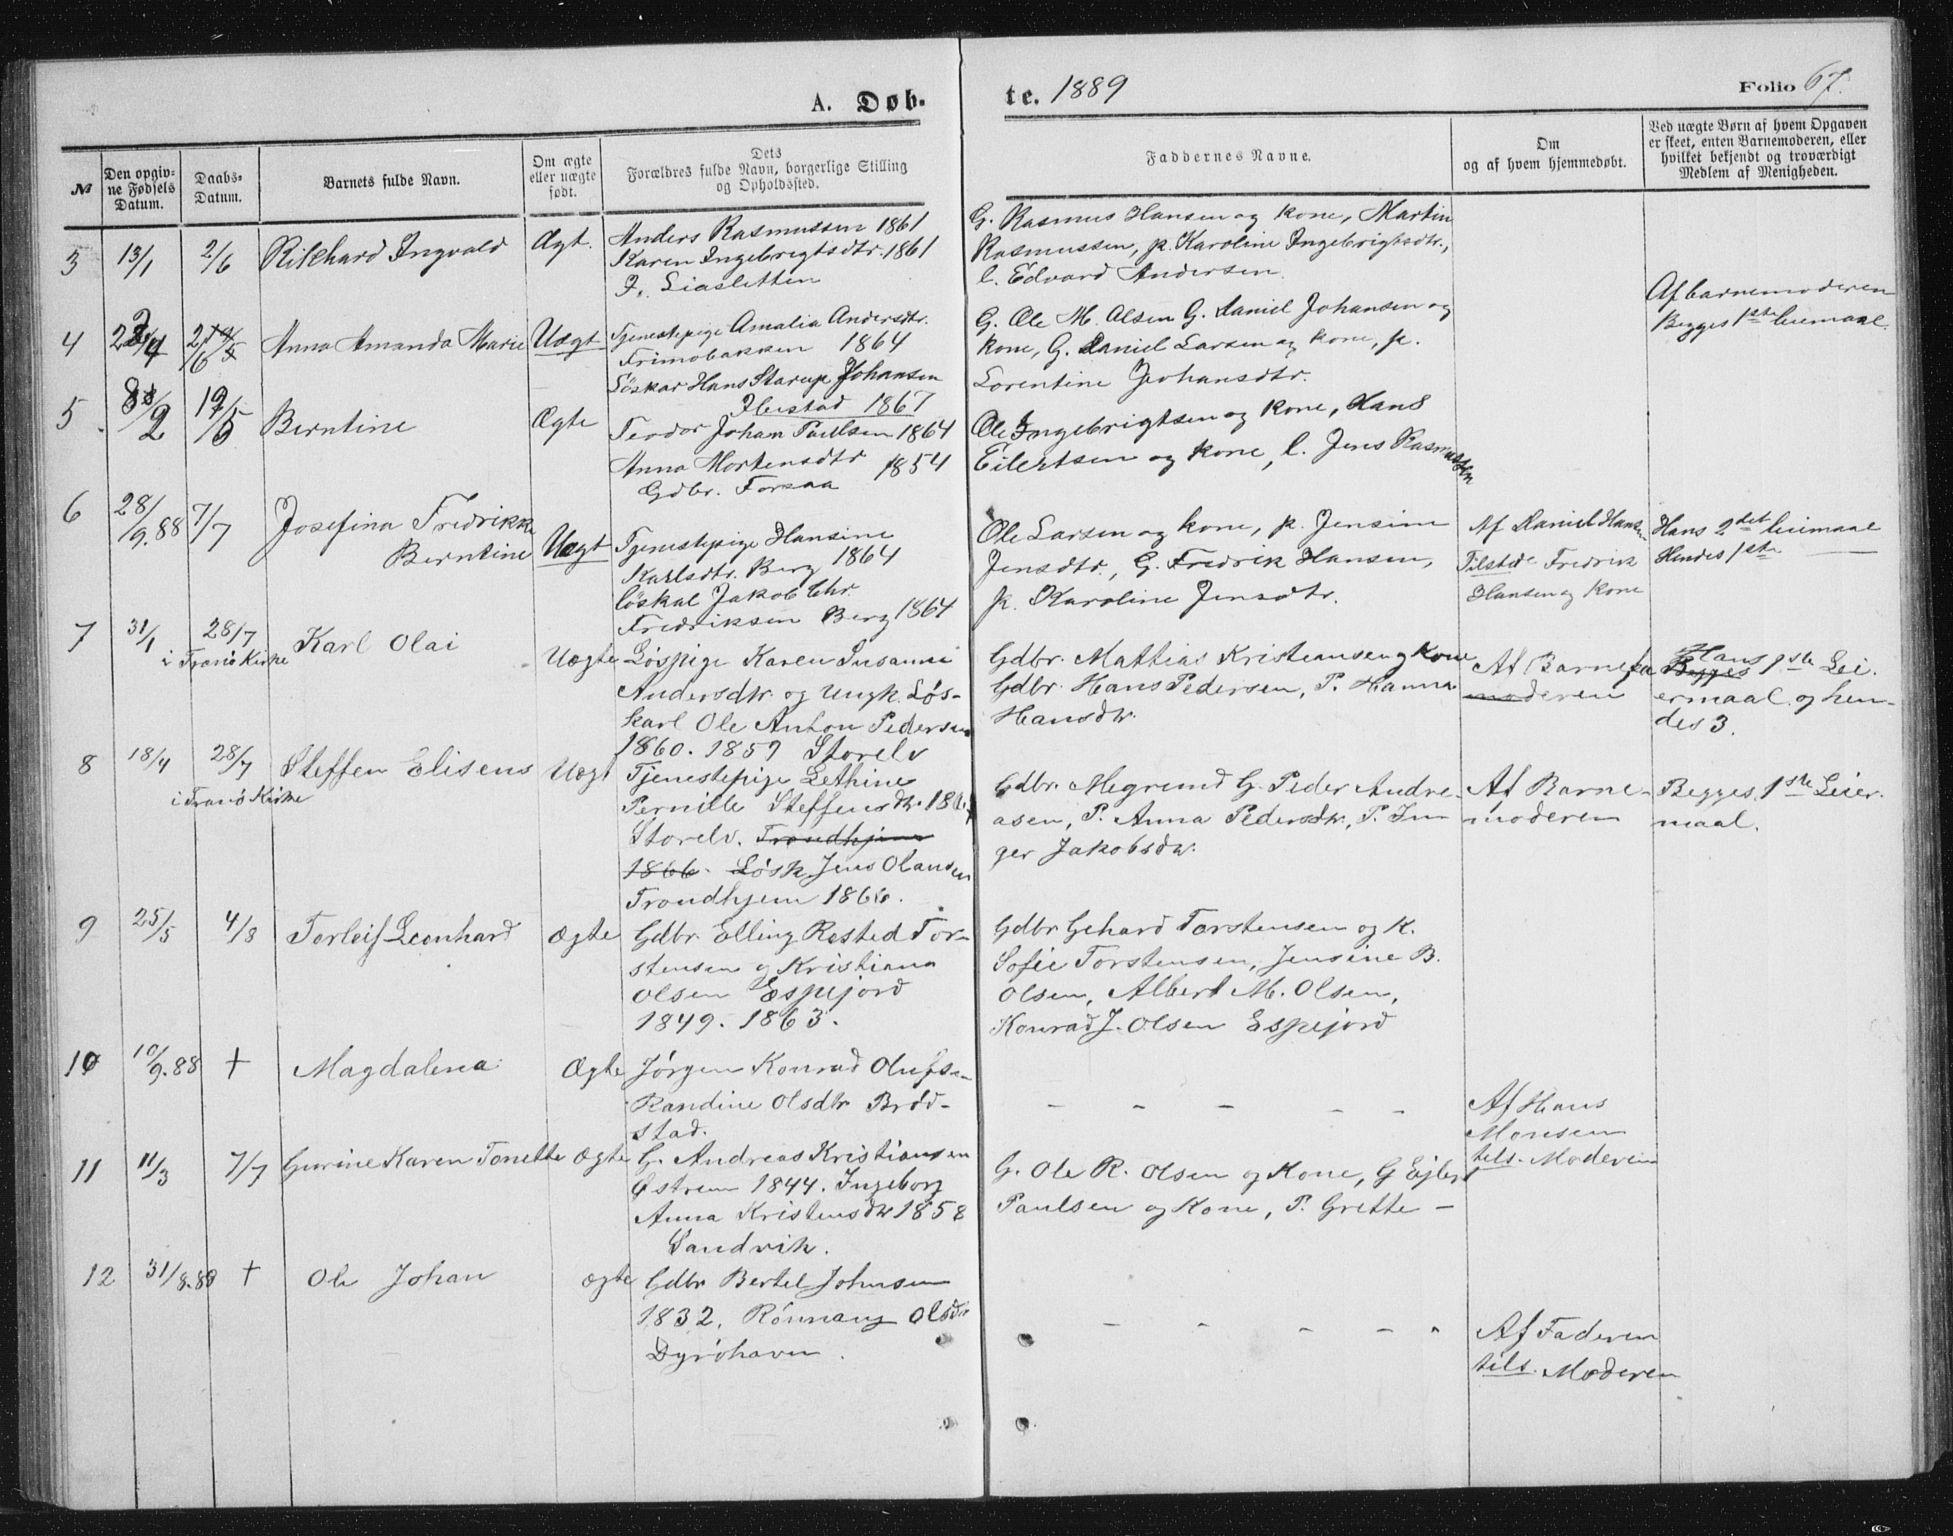 A. Døb-
te. 1889
Folio 67.
№
Den opgiv-
ne Fødsels
Datum.
Daabs-
Datum.
Barnets fulde Navn.
Om ægte
eller uægte
født.
Dets
Forældres fulde Navn, borgerlige Stilling
og Opholdssted.
Faddernes Navne.
Om
og af hvem hjemmedøbt.
Ved uægte Børn af hvem Opgaven
er skeet, enten Barnemoderen, eller
hvilket bekjendt og troværdigt
Medlem af Menigheden.
3 13/1 2/6 Rikhard Ingvald Ægt.
Anders Rasmussen 1861
Karen Ingebrigtsdtr. 1861
Liasletten
G. Rasmus Hansen og kone, Martin
Rasmussen, p. Karoline Ingebrigtsdtr.,
l. Edvard Andersen
4 Anna Amanda Marie Uægt
Tjenestepige Amalia Andersdtr.
Frimobakken 1864
Löskar Hans Starup Johansen
Ibestad 1867
G. Ole M. Olsen G. Daniel Johansen og
kone, G. Daniel Larsen og kone, p.
Lorentine Johansdtr.
Af barnemoderen
Begges 1ste leiemaal.
5 Berntine Ægte
Teodor Johan Paulsen 1864
Anna Mortensdtr 1854
Gdbr. Forsaa
Ole Ingebrigtsen og kone, Hans
Eilertsen og kone, l. Jens Rasmussen
6 28/9.88 7/7 Josefina Fredrikke
Berntine Uægt
Tjenestepige Hansine
Karlsdtr. Berg 1864
löskal Jakob Chr.
Fredriksen Berg 1864
Ole Larsen og kone, p. Jensine
Jensdtr., G. Fredrik Hansen,
p. Karoline Jensdtr.
Af Daniel Hansen
Tilstede Fredrik
Hansen og kone
Hans 2det leiemaal
Hendes 1ste
7 31/1 28/7
i Tranö Kirke
Karl Olai Uægte
Løspige Karen Susanne
Andersdtr og Ungk. Løs-
karl Ole Anton Pedersen
1860. 1859 Storelv
Gdbr. Mattias Kristiansen og Kone
Gdbr. Hans Pedersen, P. Hanna
Hansdtr.
Af Barnefa
moderen
Hans
Begges 1ste Lei-
ermaal og hen-
des 3.
8 18/4 28/7
i Tranö Kirke
Steffen Elisens Uægt
Tjenestepige Lethine
Pernille Steffensdtr.
Storelv. Trondhjem
1866. Løsk. Jens Olausen
Trondhjem 1866.
Gdbr. Megrund G. Peder Andre-
asen, P. Anna Pedersdtr, P. In-
ger Jakobsdtr.
Af Barne-
moderen
Begges 1ste Leier-
maal.
9 25/5 4/8 Torleif Leonhard Ægte
Gdbr. Elling Rested Tor-
stensen og Kristiana
Olsen Espejord
1849. 1863.
Gdbr Gehard Torstensen og K.
Sofie Torstensen, Jensine B.
Olsen, Albert M. Olsen,
Konrad J. Olsen Espejord
10 10/9.88 † Magdalena Ægte
Jørgen Konrad Olufsen
Randine Olsdtr Brød-
stad.
- - - - -
Af Hans
Monsen
tils. Moderen
11 11/3 7/7 Gurine Karen Tonette Ægte
G. Andreas Kristiansen
Østrem 1844. Ingeborg
Anna Kristensdtr 1858
Sandvik.
G. Ole R. Olsen og Kone, G Ejlert
Paulsen og Kone, P. Grette -
12 31/8.88 † Ole Johan Ægte
Gdbr Bertel Johnsen
1832, Rönnaug Olsdtr
Dyröhavn.
- - - - -
Af Faderen
tils. Moderen